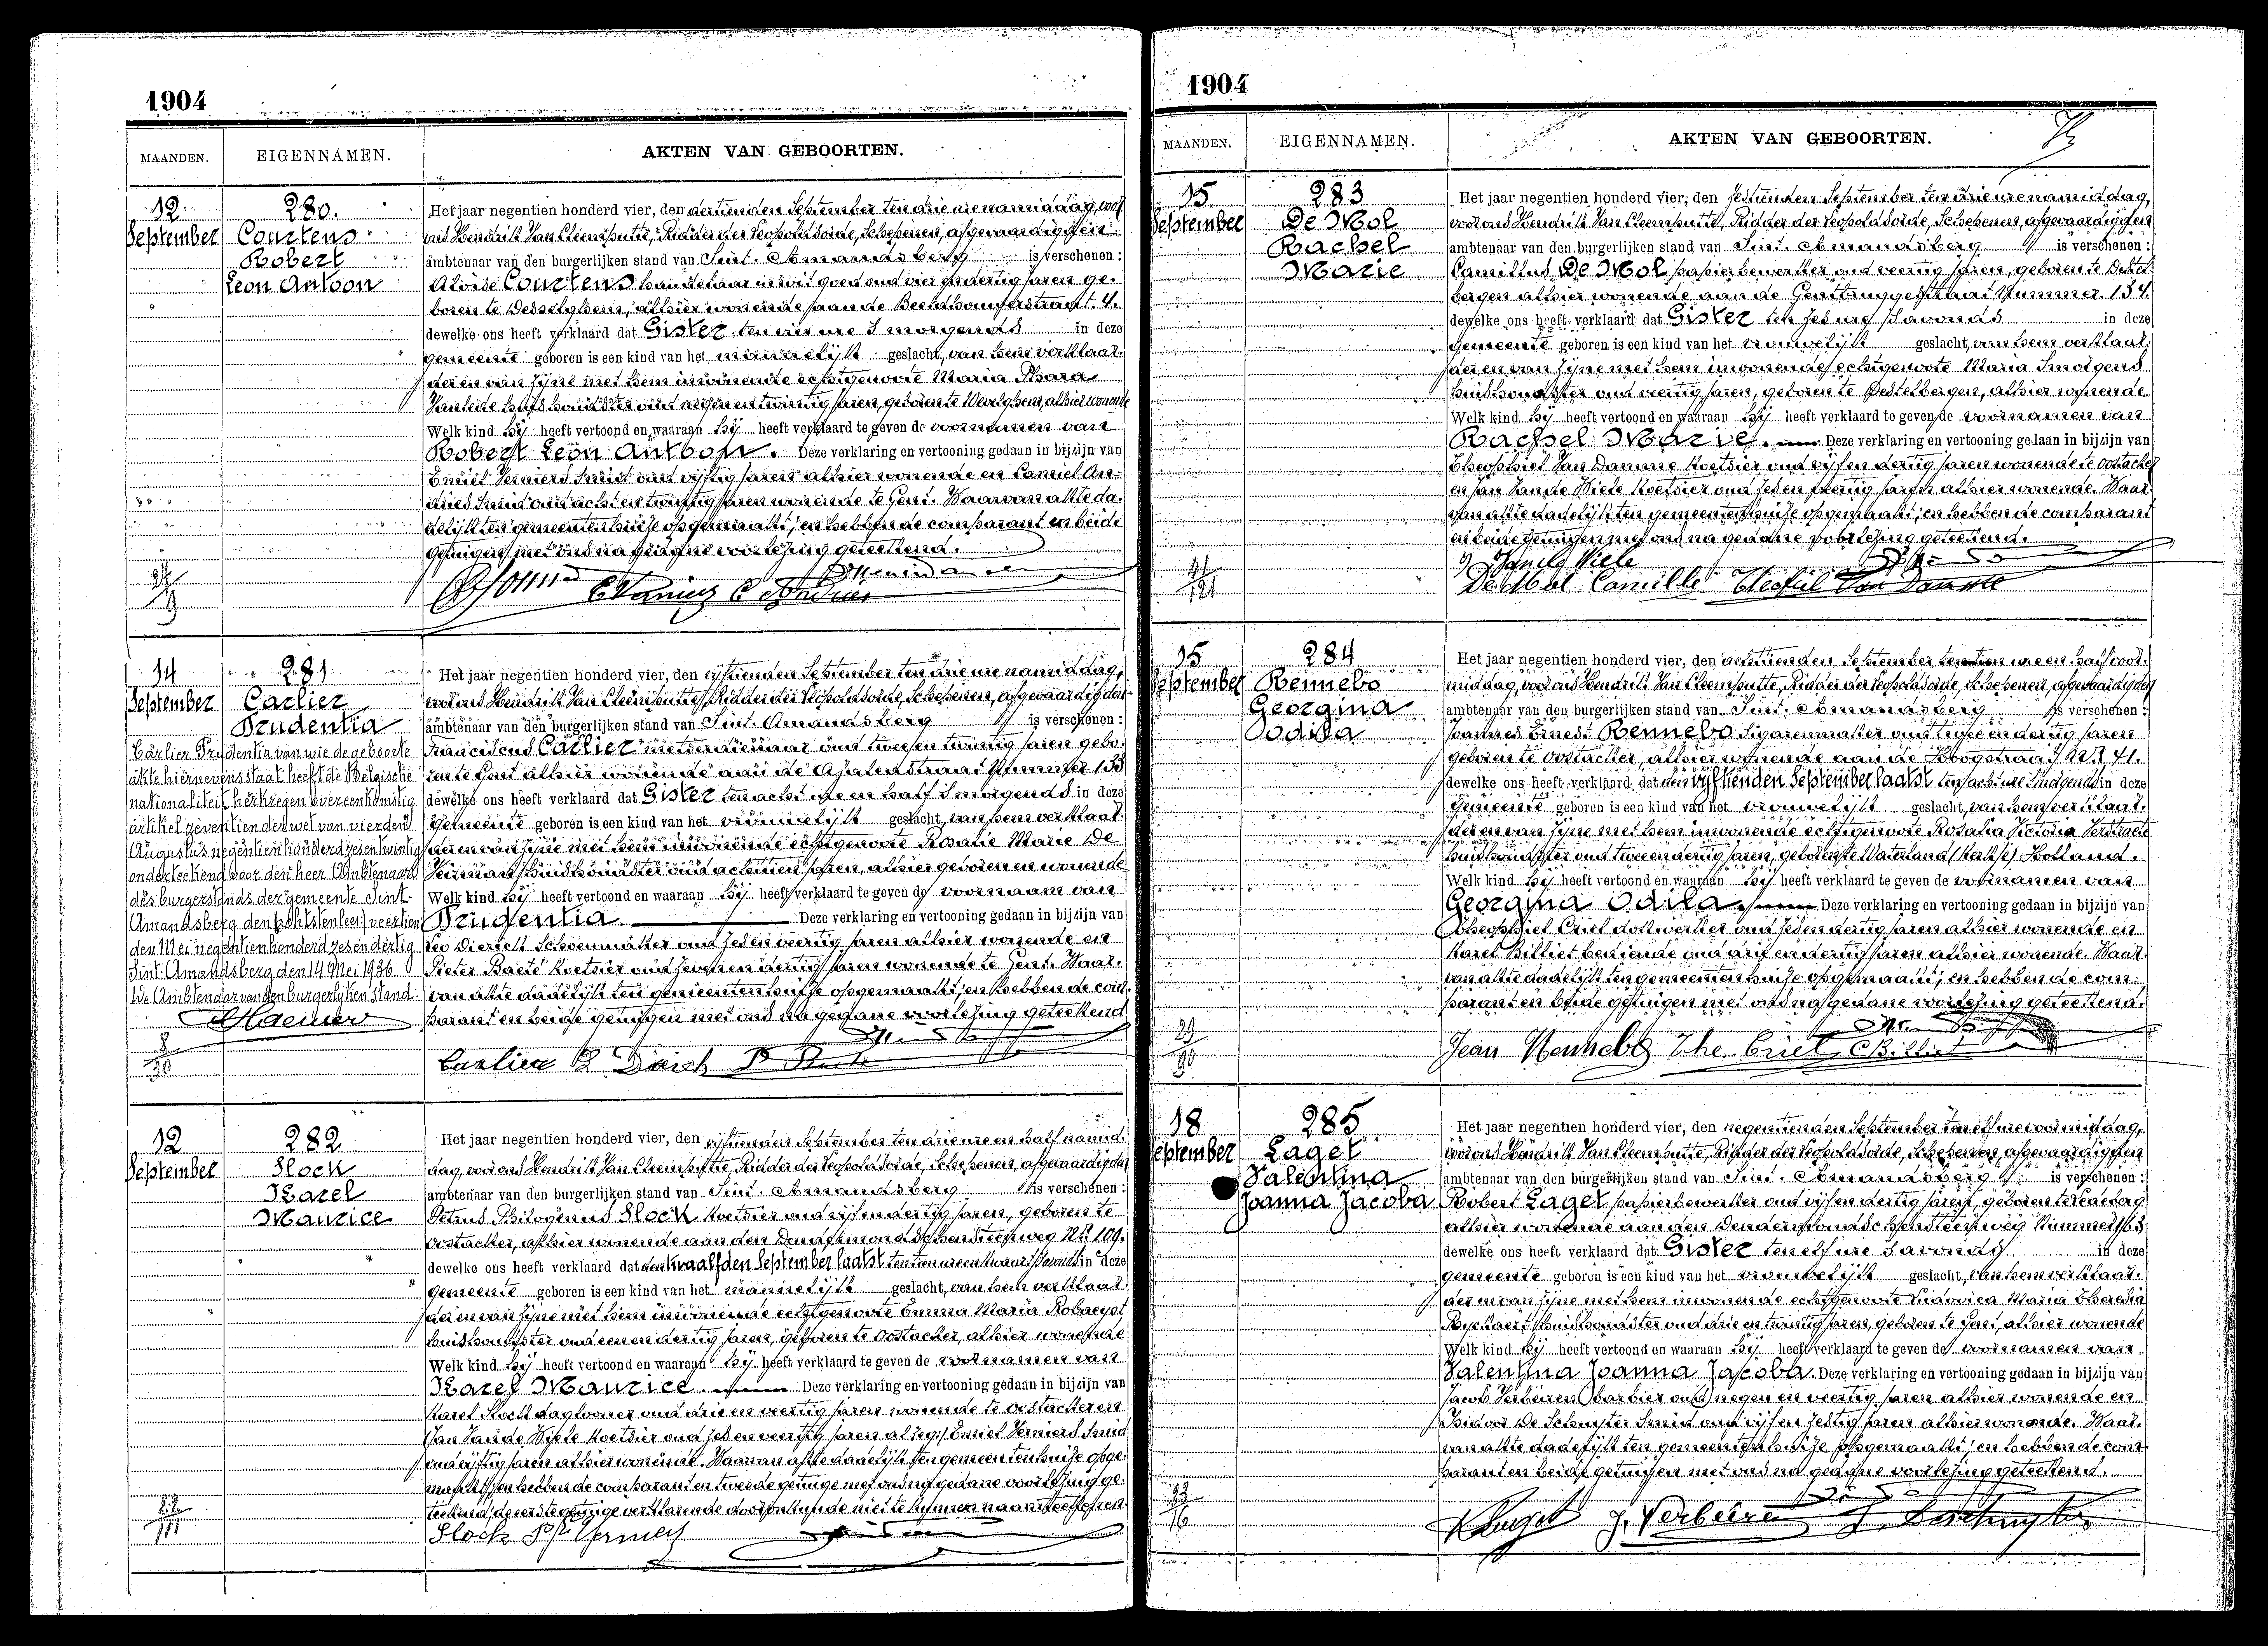 1904
MAANDEN. EIGENNAMEN. AKTEN VAN GEBOORTEN.
12 September
280.
Courtens
Robert
Leon Antoon
Het jaar negentien honderd vier, den dertienden September ten drie ure namiddag, voor
ons Hendrik Van Cleemputte, Ridder der Leopoldsorde, Schepenen, afgevaardigden
ambtenaar van den burgerlijken stand van Sint. Amandsberg is verschenen :
Aloise Courtens handelaar in wit goed oud vier en dertig jaren ge-
boren te Desselghem, alhier wonende aan de
dewelke ons heeft verklaard dat Gister ten vier ure s'morgends in deze
gemeente geboren is een kind van het mannelijk geslacht, van hem verklaar-
der en van zijne met hem inwonende echtgenoote Maria
huishoudster oud negen en twintig jaren, geboren te Wevelghem, alhier wonende
Welk kind hij heeft vertoond en waaraan hij heeft verklaard te geven de voornamen van
Robert Leon Antoon. Deze verklaring en vertooning gedaan in bijzijn van
Emiel Verniers Smid oud vijftig jaren alhier wonende en Camiel An-
dries Smid oud acht en twintig jaren wonende te Gent. Waarvan akte da-
delijk ten gemeentenhuize opgemaakt, en hebben de comparant en beide
getuigen met ons na gedane voorlezing geteekend.
14 September
281
Carlier
Prudentia
Carlier Prudentia van wie de geboorte
akte hiernevens staat heeft de Belgische
nationaliteit herkregen overeenkomstig
artikel zeventien der wet van vierden
Augustus negentien honderd zes en twintig
onderteekend voor den heer Ambtenaar
des burgerstands der gemeente Sint-
Amandsberg den veertien
den Mei negentien honderd zes en dertig
Sint-Amandsberg, den 14 Mei 1936
De Ambtenaar van den burgerlijken Stand
Het jaar negentien honderd vier, den vijftienden September ten drie ure namiddag,
voor ons Hendrik Van Cleemputte, Ridder der Leopoldsorde, Schepenen, afgevaardigden
ambtenaar van den burgerlijken stand van Sint. Amandsberg is verschenen :
Franciscus Carlier metserdienaar oud twee en twintig jaren gebo-
ren te Gent alhier wonende aan de Nummer 133
dewelke ons heeft verklaard dat Gister ten acht ure en half s'morgends in deze
gemeente geboren is een kind van het vrouwelijk geslacht, van hem verklaar-
der en van zijne met hem inwonende echtgenoote Rosalie Marie De
huishoudster oud achttien jaren, alhier geboren en wonende
Welk kind hij heeft vertoond en waaraan hij heeft verklaard te geven de voornaam van
Prudentia. Deze verklaring en vertooning gedaan in bijzijn van
Leo Dierick Schoenmaker oud zes en veertig jaren alhier wonende en
Pieter Baete Koetsier oud zeven en dertig jaren wonende te Gent. Waar-
van akte dadelijk ten gemeentenhuize opgemaakt, en hebben de com-
parant en beide getuigen met ons na gedane voorlezing geteekend
Carlier
12 September
282
Slock
Karel
Maurice
Het jaar negentien honderd vier, den vijftienden September ten drie ure en half namid-
dag, voor ons Hendrik Van Cleemputte, Ridder der Leopoldsorde, Schepenen, afgevaardigden
ambtenaar van den burgerlijken stand van Sint. Amandsberg is verschenen :
Petrus Philogenus Slock Koetsier oud vijf en dertig jaren, geboren te
Oostacker, alhier wonende aan den Dendermondschensteenweg Nr 109.
dewelke ons heeft verklaard dat den twaalfden September laatst ten tien ure en kwaart s'avonds in deze
gemeente geboren is een kind van het mannelijk geslacht, van hem verklaar-
der en van zijne met hem inwonende echtgenoote Emma Maria Robaeyst
huishoudster oud een en dertig jaren, geboren te Oostacker, alhier wonende
Welk kind hij heeft vertoond en waaraan hij heeft verklaard te geven de voornamen van
Karel Maurice. Deze verklaring en vertooning gedaan in bijzijn van
Karel Slock dagloner oud drie en veertig jaren wonende te Oostacker en
Jan Van de Wiele Koetsier oud zes en veertig jaren Emiel Verniers Smid
oud vijftig jaren alhier wonende. Waarvan akte dadelijk ten gemeentenhuize opge-
maakt, en hebben de comparant en tweede getuige met ons na gedane voorlezing ge-
teekend, de eerste getuige verklarende door onkunde niet te kunnen naamteekenen.
Slock
1904
MAANDEN. EIGENNAMEN. AKTEN VAN GEBOORTEN.
15 September
283
De Mol
Rachel
Marie
Het jaar negentien honderd vier, den zestienden September ten drie ure namiddag,
voor ons Hendrik Van Cleemputte, Ridder der Leopoldsorde, Schepenen, afgevaardigden
ambtenaar van den burgerlijken stand van Sint. Amandsberg is verschenen :
Camillus De Mol papierbewerker oud veertig jaren, geboren te Destel-
bergen alhier wonende aan de Nummer 134.
dewelke ons heeft verklaard dat Gister ten zes ure s'avonds in deze
Gemeente geboren is een kind van het vrouwelijk geslacht, van hem verklaar-
der en van zijne met hem inwonende echtgenoote Maria
huishoudster oud veertig jaren, geboren te Destelbergen, alhier wonende
Welk kind hij heeft vertoond en waaraan hij heeft verklaard te geven de voornamen van
Rachel Marie. Deze verklaring en vertooning gedaan in bijzijn van
Theophiel Van Damme Koetsier oud vijf en dertig jaren wonende te Oostacker
en Jan Van de Wiele Koetsier oud zes en veertig jaren alhier wonende. Waar-
van akte dadelijk ten gemeentenhuize opgemaakt, en hebben de comparant
en beide getuigen met ons na gedane voorlezing geteekend.
De Mol Camille Theofiel Van Damme
15 September
284
Rennebo
Georgina
Odila
Het jaar negentien honderd vier, den achttienden September ten tien ure en half voor-
middag, voor ons Hendrik Van Cleemputte, Ridder der Leopoldsorde, Schepenen, afgevaardigden
ambtenaar van den burgerlijken stand van Sint. Amandsberg is verschenen :
Joannes Ernest Rennebo Sigarenmaker oud twee en dertig jaren
geboren te Oostacker, alhier wonende aan de Hoogstraat Nr 41.
dewelke ons heeft verklaard dat den vijftienden September laatst ten acht ure s'morgends in deze
Gemeente geboren is een kind van het vrouwelijk geslacht, van hem verklaar-
der en van zijne met hem inwonende echtgenoote Rosalia Victoria Verstraete
huishoudster oud twee en dertig jaren, geboren te Waterland (Kerkje) Holland.
Welk kind hij heeft vertoond en waaraan hij heeft verklaard te geven de voornamen van
Georgina Odila. Deze verklaring en vertooning gedaan in bijzijn van
Theophiel Criel dokwerker oud zes en dertig jaren alhier wonende en
Karel Billiet bediende oud drij en dertig jaren alhier wonende. Waar-
van akte dadelijk ten gemeentenhuize opgemaakt, en hebben de com-
parant en beide getuigen met ons na gedane voorlezing geteekend.
Jean Rennebo The. Criel C Billiet
18 September
285
Lagel
Valentina
Joanna Jacoba
Het jaar negentien honderd vier, den negentienden September ten elf ure voormiddag,
voor ons Hendrik Van Cleemputte, Ridder der Leopoldsorde, Schepenen, afgevaardigden
ambtenaar van den burgerlijken stand van Sint. Amandsberg is verschenen :
Robert Lagel papierbewerker oud vijf en dertig jaren, geboren te Ledeberg
alhier wonende aan den Dendermondschensteenweg Nummer 163
dewelke ons heeft verklaard dat Gister ten elf ure s'avonds in deze
gemeente geboren is een kind van het vrouwelijk geslacht, van hem verklaar-
der en van zijne met hem inwonende echtgenoote Ludovica Maria Theresia
huishoudster oud drie en twintig jaren, geboren te Gent, alhier wonende
Welk kind hij heeft vertoond en waaraan hij heeft verklaard te geven de voornamen van
Valentina Joanna Jacoba. Deze verklaring en vertooning gedaan in bijzijn van
Jacob Verbeiren barbier oud negen en veertig jaren alhier wonende en
Isidoor De Schuyster Smid oud vijf en zestig jaren alhier wonende. Waar-
van akte dadelijk ten gemeentenhuize opgemaakt, en hebben de com-
parant en beide getuigen met ons na gedane voorlezing geteekend.
R Lagel J. Verbeire